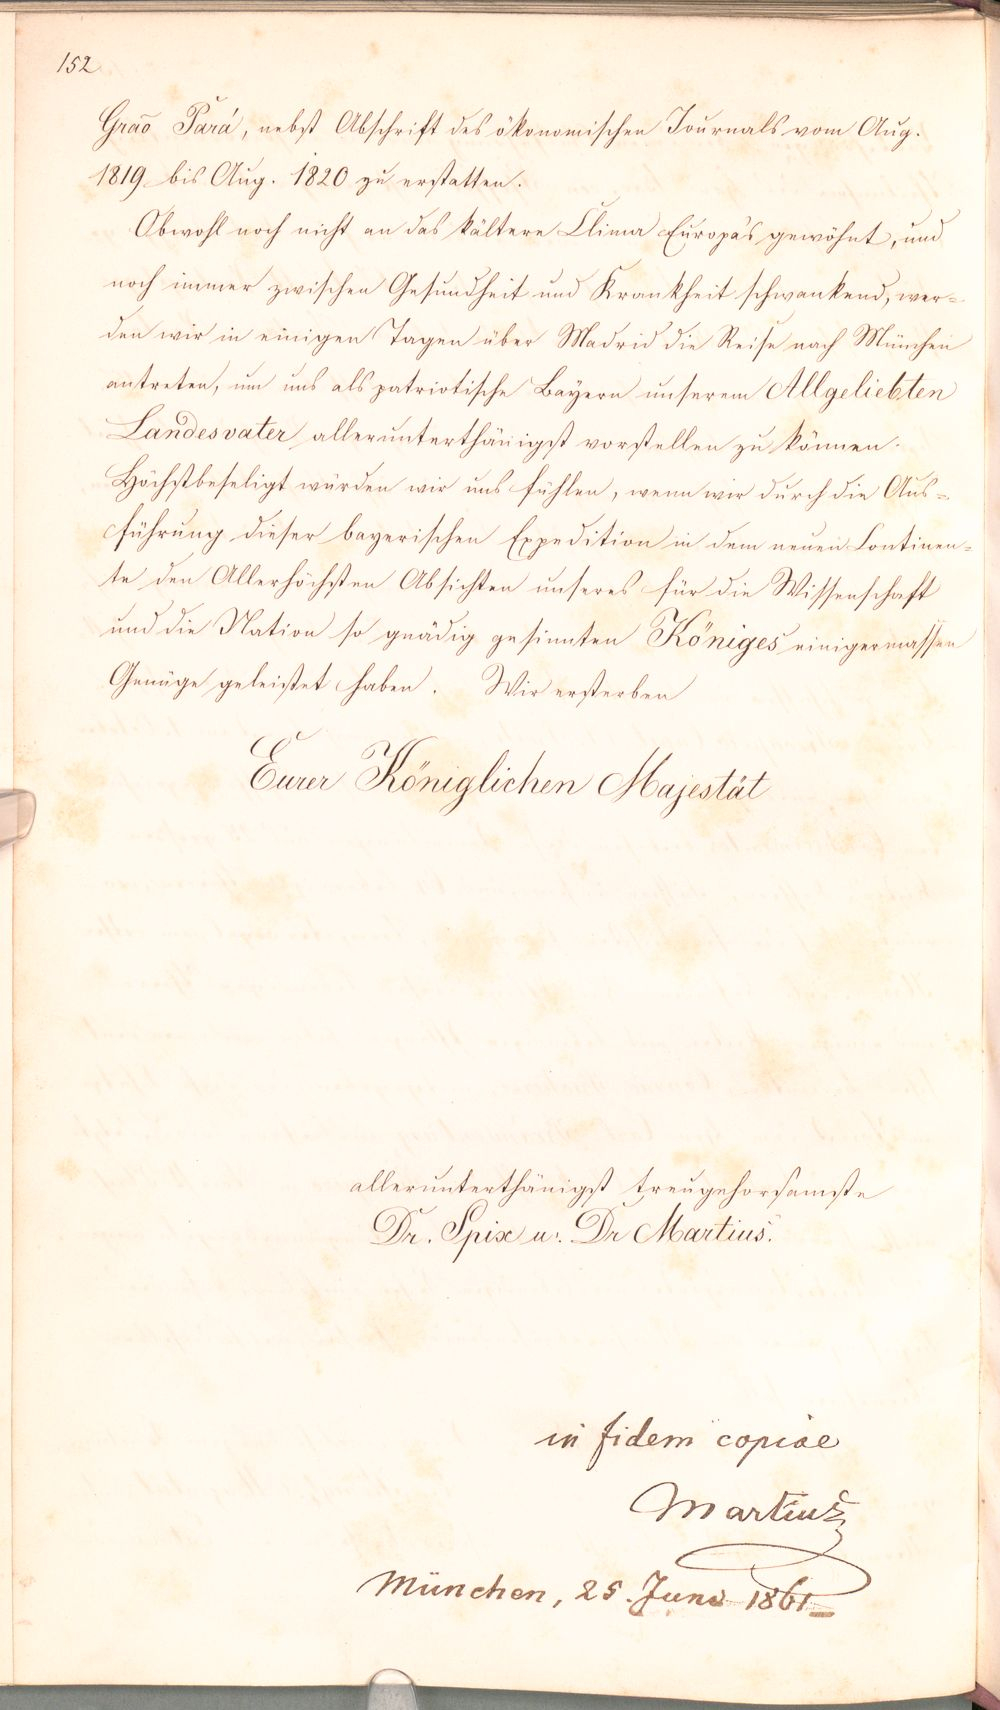 152
Grão Pará, nebst Abschrift des ökonomischen Journals vom Aug.
1819 bis Aug. 1820 zu erstatten.
Obwohl noch nicht an das kältere Clima Europa's gewöhnt, und
noch immer zwischen Gesundheit und Krankheit schwankend, wer=
den wir in einigen Tagen über Madrid die Reise nach München
antreten, um uns als patriotische Bayern unserem Allgeliebten
Landesvater allerunterthänigst vorstellen zu können.
Höchstbeseligt würden wir uns fühlen, wenn wir durch die Aus=
führung dieser bayerischen Expedition in dem neuen Continen=
te den Allerhöchsten Absichten unseres für die Wissenschaft
und die Nation so gnädig gesinnten Königes einigermassen
Genüge geleistet haben. Wir ersterben
Eurer Königlichen Majestät
allerunterthänigst treugehorsamste
Dr. Spix u. Dr Martius.
in fidem copiae
Martius
München, 25. Juni 1861